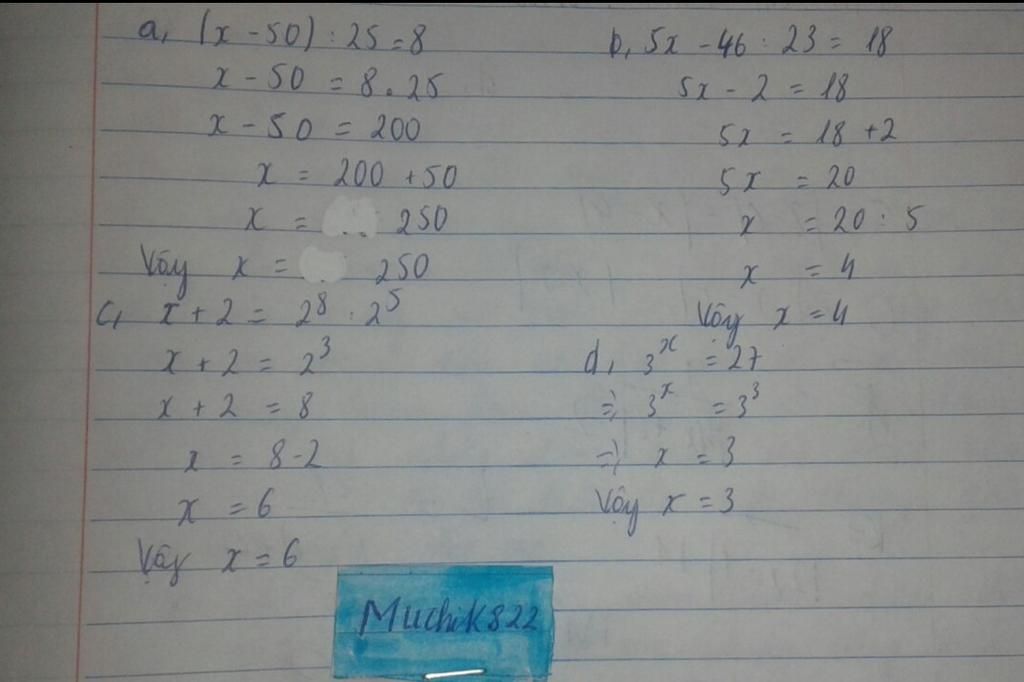 a, (x - 50) : 25 = 8
x - 50 = 8 . 25
x - 50 = 200
x = 200 + 50
x = 250
Vậy x = 250
c, x + 2 = 2⁸ : 2⁵
x + 2 = 2³
x + 2 = 8
x = 8 - 2
x = 6
Vậy x = 6
b, 5x - 46 : 23 = 18
5x - 2 = 18
5x = 18 + 2
5x = 20
x = 20 : 5
x = 4
Vậy x = 4
d, 3ˣ = 27
=> 3ˣ = 3³
=> x = 3
Vậy x = 3
Muchik822